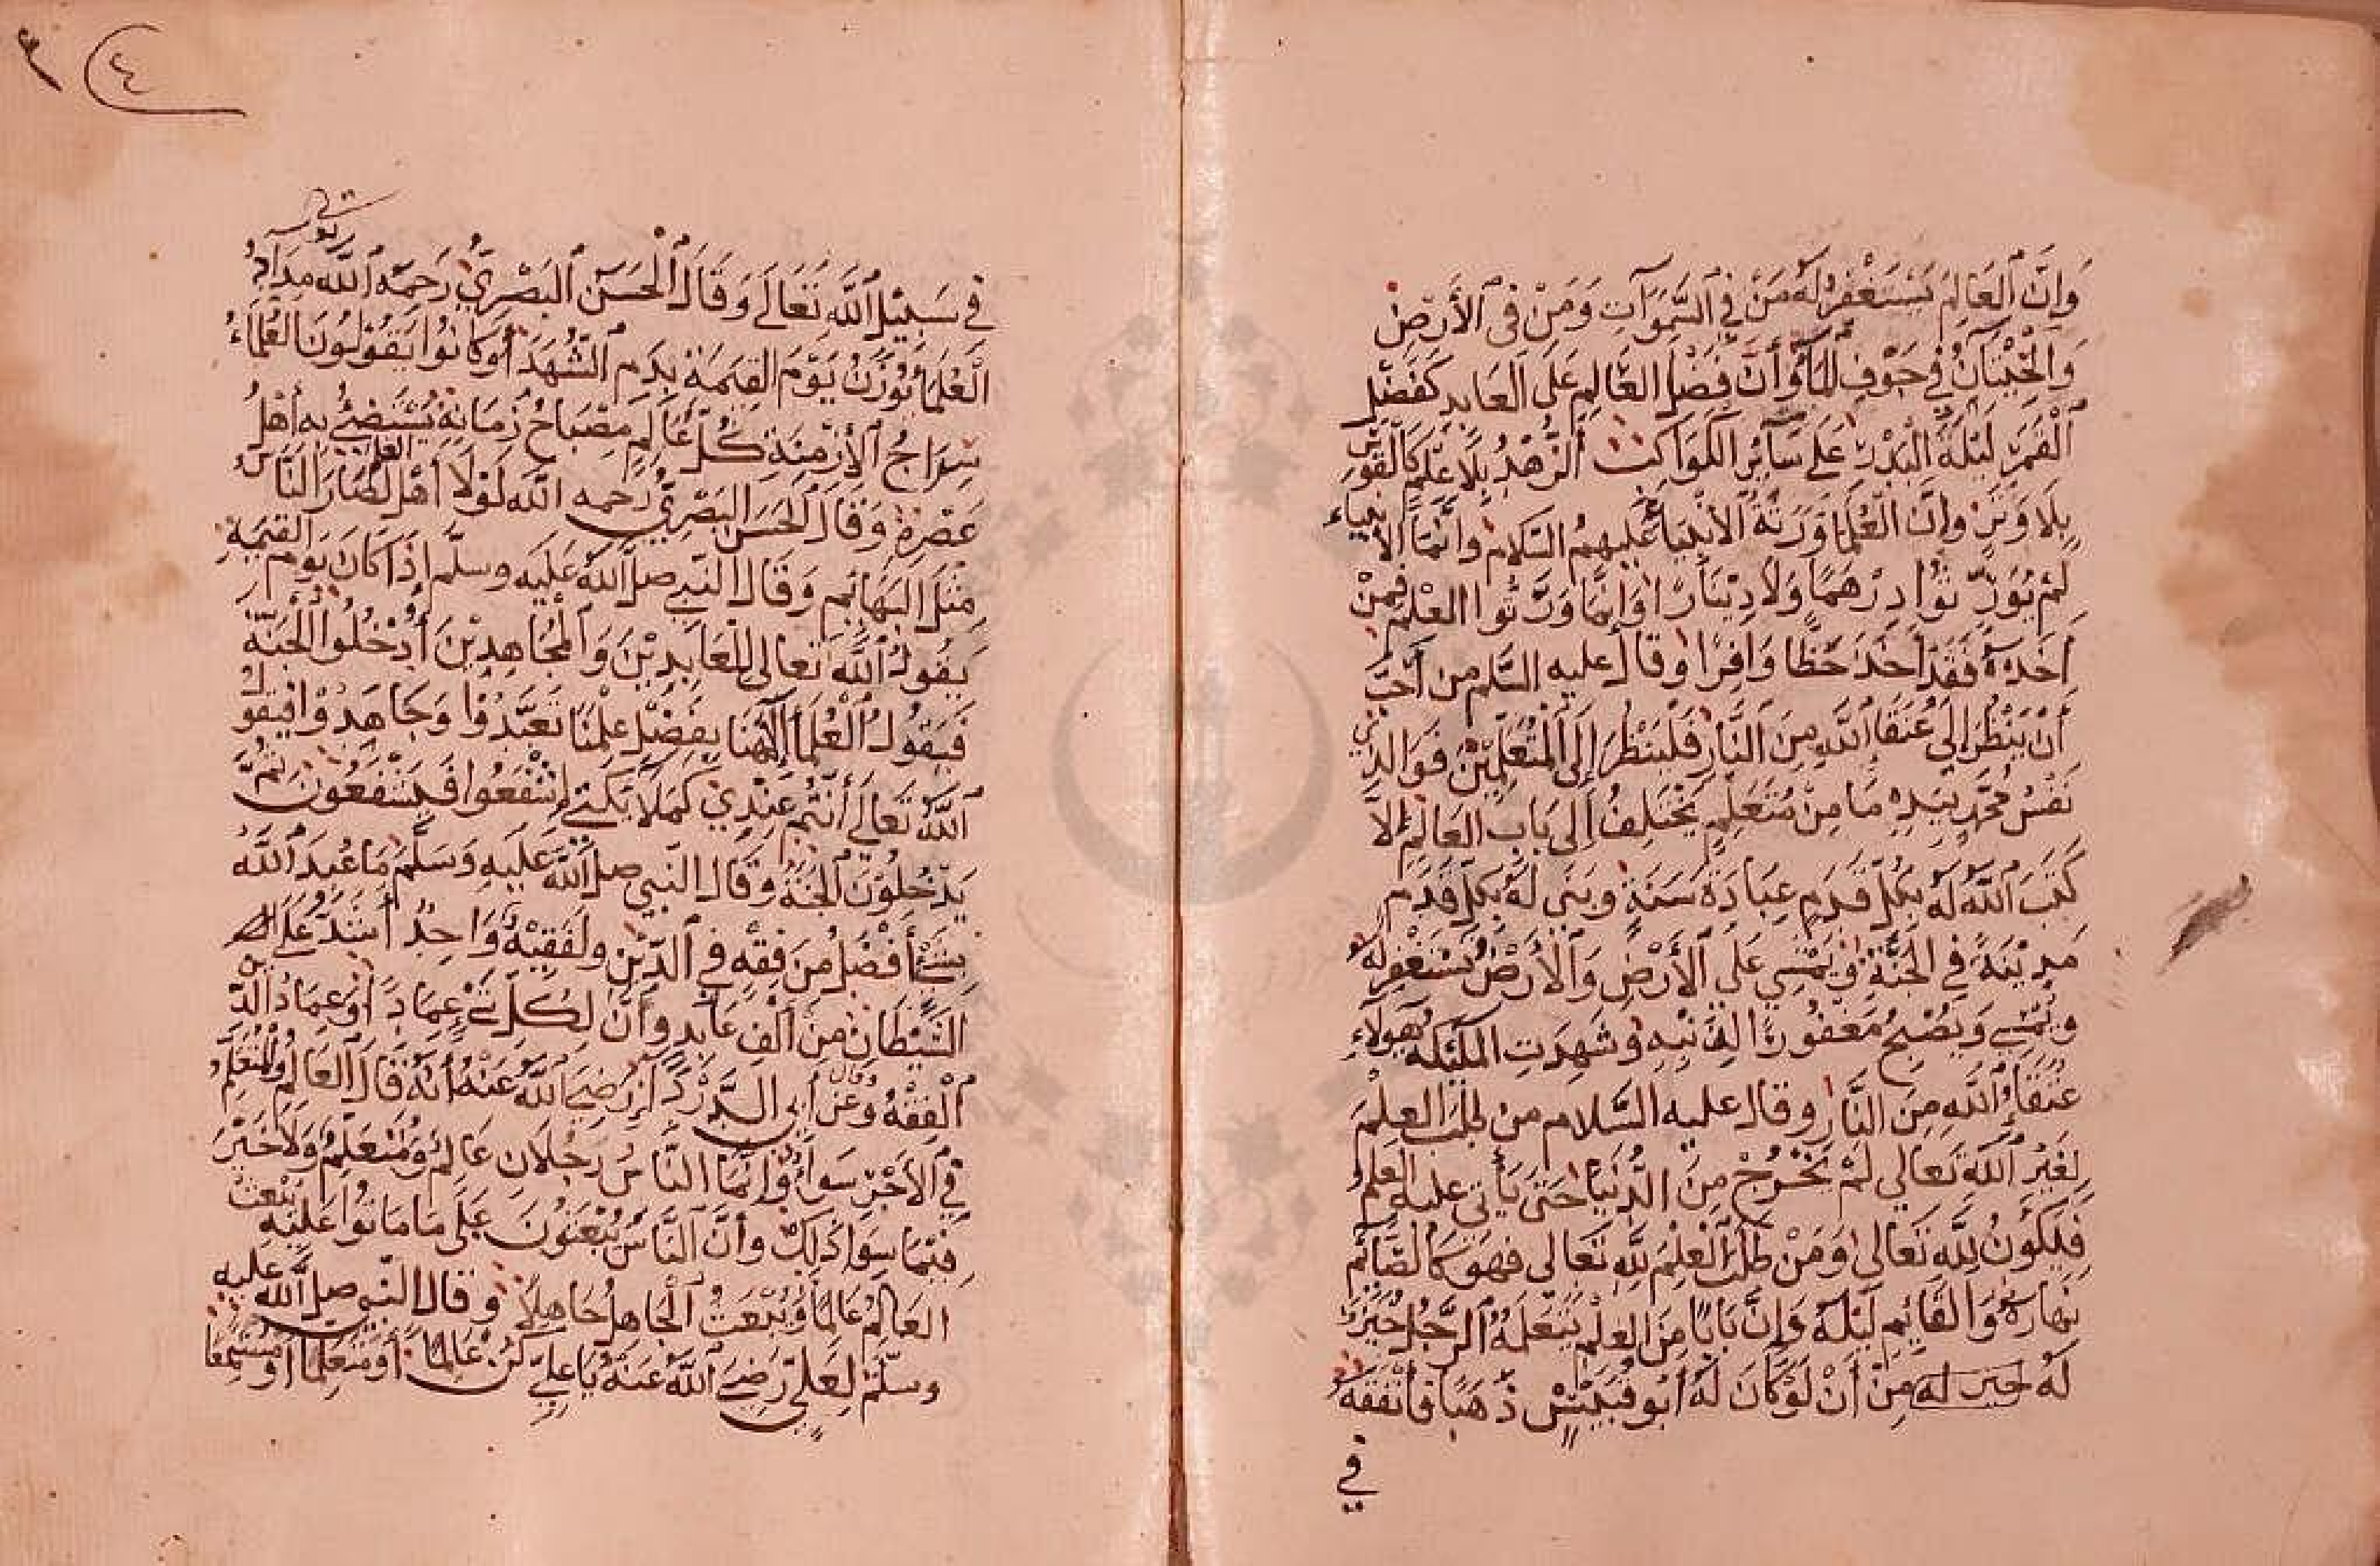 وَاِنَّ ٱلعَالِمَ يَسْتَغْفِرُ لَهُ مَنْ فِي ٱلسَّمٰوَاتِ وَمَنْ فِى ٱلأَرْضِ
وَٱلْحِيْتَانُ فِي جَوْفِ ٱلمَاءِ وَأَنَّ فَضْلَ العَالِمِ عَلَى العَابِدِ كَفَضْلِ
ٱلْقَمَرِ لَيْلَةَ الْبَدْرِ عَلَى سَآئِرِ الكَوَاكِبِ ٱلزُّهْدُ بِلَا عِلْمٍ كَٱلْقَوْسِ
بِلَا وَتَرٍ وَاِنَّ العُلَمَاءَ وَرَثَةُ الأَنْبِيَاءِ عَلَيهِمُ السَّلَامُ وَاَنَّمَا الأَنبياء
لَمْ يُوَرِّثُوا دِرْهَمًا وَلَا دِيْنَارًا وَاِنَّمَا وَرَّثُوا العْلْمَ فَمَنْ
اَخَذَهُ فَقَدْ اَخَذَ حَظًّا وَافِرًا وقالَ عليه السَّلم من اَحَبَّ
أَنْ يَنْظُرَ اِلَى عُتَقَاءِ ٱللَّهِ مِنَ النَّارِ فَلْيَنْظُرْ اِلَى ٱلْمُتَعَلِّمِيْنَ فَوَالَّذِي
نَفْسُ مُحَمَّدٍ بِيَدِهِ مَا مِنْ مُتَعَلِّمٍ يَخْتَلِفُ اِلَى بَابِ العَالِمِ اِلَّا
كَتَبَ ٱللَّهُ لَهُ بِكُلِّ قَدَمٍ عِبَادَةَ سَنَةٍ وَبَنَى لَهُ بِكُلِّ قَدَمٍ
مَدِيْنَةً فِي الْجَنَّةِ وَيَمْشِي عَلَى ٱلأَرْضِ وَٱلأَرْضُ تَسْتَغْفِرُ لَهُ
وَيُمْسِي وَيُصْبِحُ مَغْفُورًا لِذَنْبِهِ وَشَهِدَتِ المَلٰئِكَةُ هٰؤلَاءِ
عُتَقَاءُ ٱللَّهِ مِنَ النَّارِ وقالَ عليه السَّلام من طَلَبَ العِلْمَ
لِغَيْرِ ٱللَّهِ تَعَالى لَمْ يَخْرُجْ مِنَ الدُّنْيَا حَتَّى يَأْتى عليه العِلمُ
فَيَكُونُ لِلَّهِ تَعَالى وَمَنْ طَلَبَ ٱلْعِلْمَ لِلَّهِ تَعَالى فهوَ كَالصَّائِمِ
نَهَارَهُ وَالقَائِمِ لَيْلَهُ وَاِنَّ بَابًا مِنَ العِلْمِ يَتَعَلَّمُهُ ٱلرَّجُلُ خَيْرٌ
لَهُ خير له مِنْ أَنْ لَوْ كَانَ لَهُ أَبُو قُبَيْسٍ ذَهَبًا فَأَنْفَقَهُ
في
٤٤
فِي سَبِيْلِ ٱللَّهِ تَعَالَى وَقَالَ ٱلْحَسَنُ ٱلبَصْرِيُّ رَحِمَهُ ٱللَّهُ مِدَادُ
الْعُلَمَاءِ يُوْزَنُ يَوْمَ القِيمَةِ بِدَمِ ٱلشُّهَدَاءِ وَكَانُوا يَقُوْلُونَ العُلَمَاءُ
سِرَاجُ ٱلأَزْمِنَةِ كُلُّ عَالِمٍ مِصْبَاحُ زَمَانِهِ يَسْتَضِئُ بِهِ أَهْلُ
عَصْرِهِ وَقَالَ ٱلحَسَنُ البَصْرِيُّ رحمه اللَّه لَوْلَا اَهْل العلم لَصَارَ النَّاسُ
مِثْلَ البَهَائِمِ وَقَالَ النَّبِيُّ صلى ٱللَّهُ عَلَيْهِ وسلَّم اِذَا كَانَ يَوم القيمَةِ
يَقُولُ ٱللَّهُ تعالى لِلْعَابِدِيْنَ وَٱلْمُجَاهِدِيْنَ أُدْخُلُوا الْجَنَّةَ
فَيَقُولُ ٱلْعُلَمَاءُ اِلٰهَنَا بِفَضْلِ عِلْمِنَا تَعَبَّدُوْا وَجَاهَدُوْا فيقول
ٱللَّهُ تَعَالَى أَنْتُمْ عِنْدِيْ كَمَلَائِكَتِي اِشْفَعُوا فَيَشْفَعُونَ ثُمَّ
يَدْخُلُوْنَ ٱلجَنَّةَ وَقَالَ النَّبِي صلى ٱللَّهُ عَلَيهِ وَسَلَّمَ مَا عُبِدَ ٱللَّه
بِشَيْءٍ أَفْضَلُ مِنَ فِقْهٍ فِي ٱلدِّيْنِ وَلَفَقِيْهٌ وَاحِدٌ اَشَدُّ عَلَى
الشَّيْطَانِ مِنْ اَلْفِ عَابِدٍ وَاَنَّ لِكُلِّ شَيْءٍ عِمَادً وَعِمَادُ الدِّينِ
ٱلْفِقْهُ وَعَنْ اَبِي الدَّرْدَآءِ رَضِيَ ٱللَّهُ عَنْهُ أَنَّهُ قَالَ العَالِمُ وَالْمُتَعَلِّمُ
فِي ٱلأَجْرِ سَوَاءٌ وَاِنَّمَا النَّاسُ رَجُلَانِ عَالِمٌ وَمُتَعَلِّمٌ وَلَا خَيْرَ
فِيْمَا سِوَا ذَلِكَ وَأَنَّ ٱلنَّاسَ يُبْعَثُونَ عَلَى مَا مَاتُوا عَلَيْهِ يُبْعَثُ
العَالِمُ عَالِمًا وَيُبْعَثُ ٱلْجَاهِلُ جَاهِلًا وَقَالَ النَّبِي صلى اللَّه عليه
وسلَّم لِعَلِيّ رَضِيَ ٱللَّهُ عَنْهُ يَا عَلِيّ كُنْ عَالِمًا أَوْ مُتَعَلِّمًا أَوْ مُسْتَمِعًا